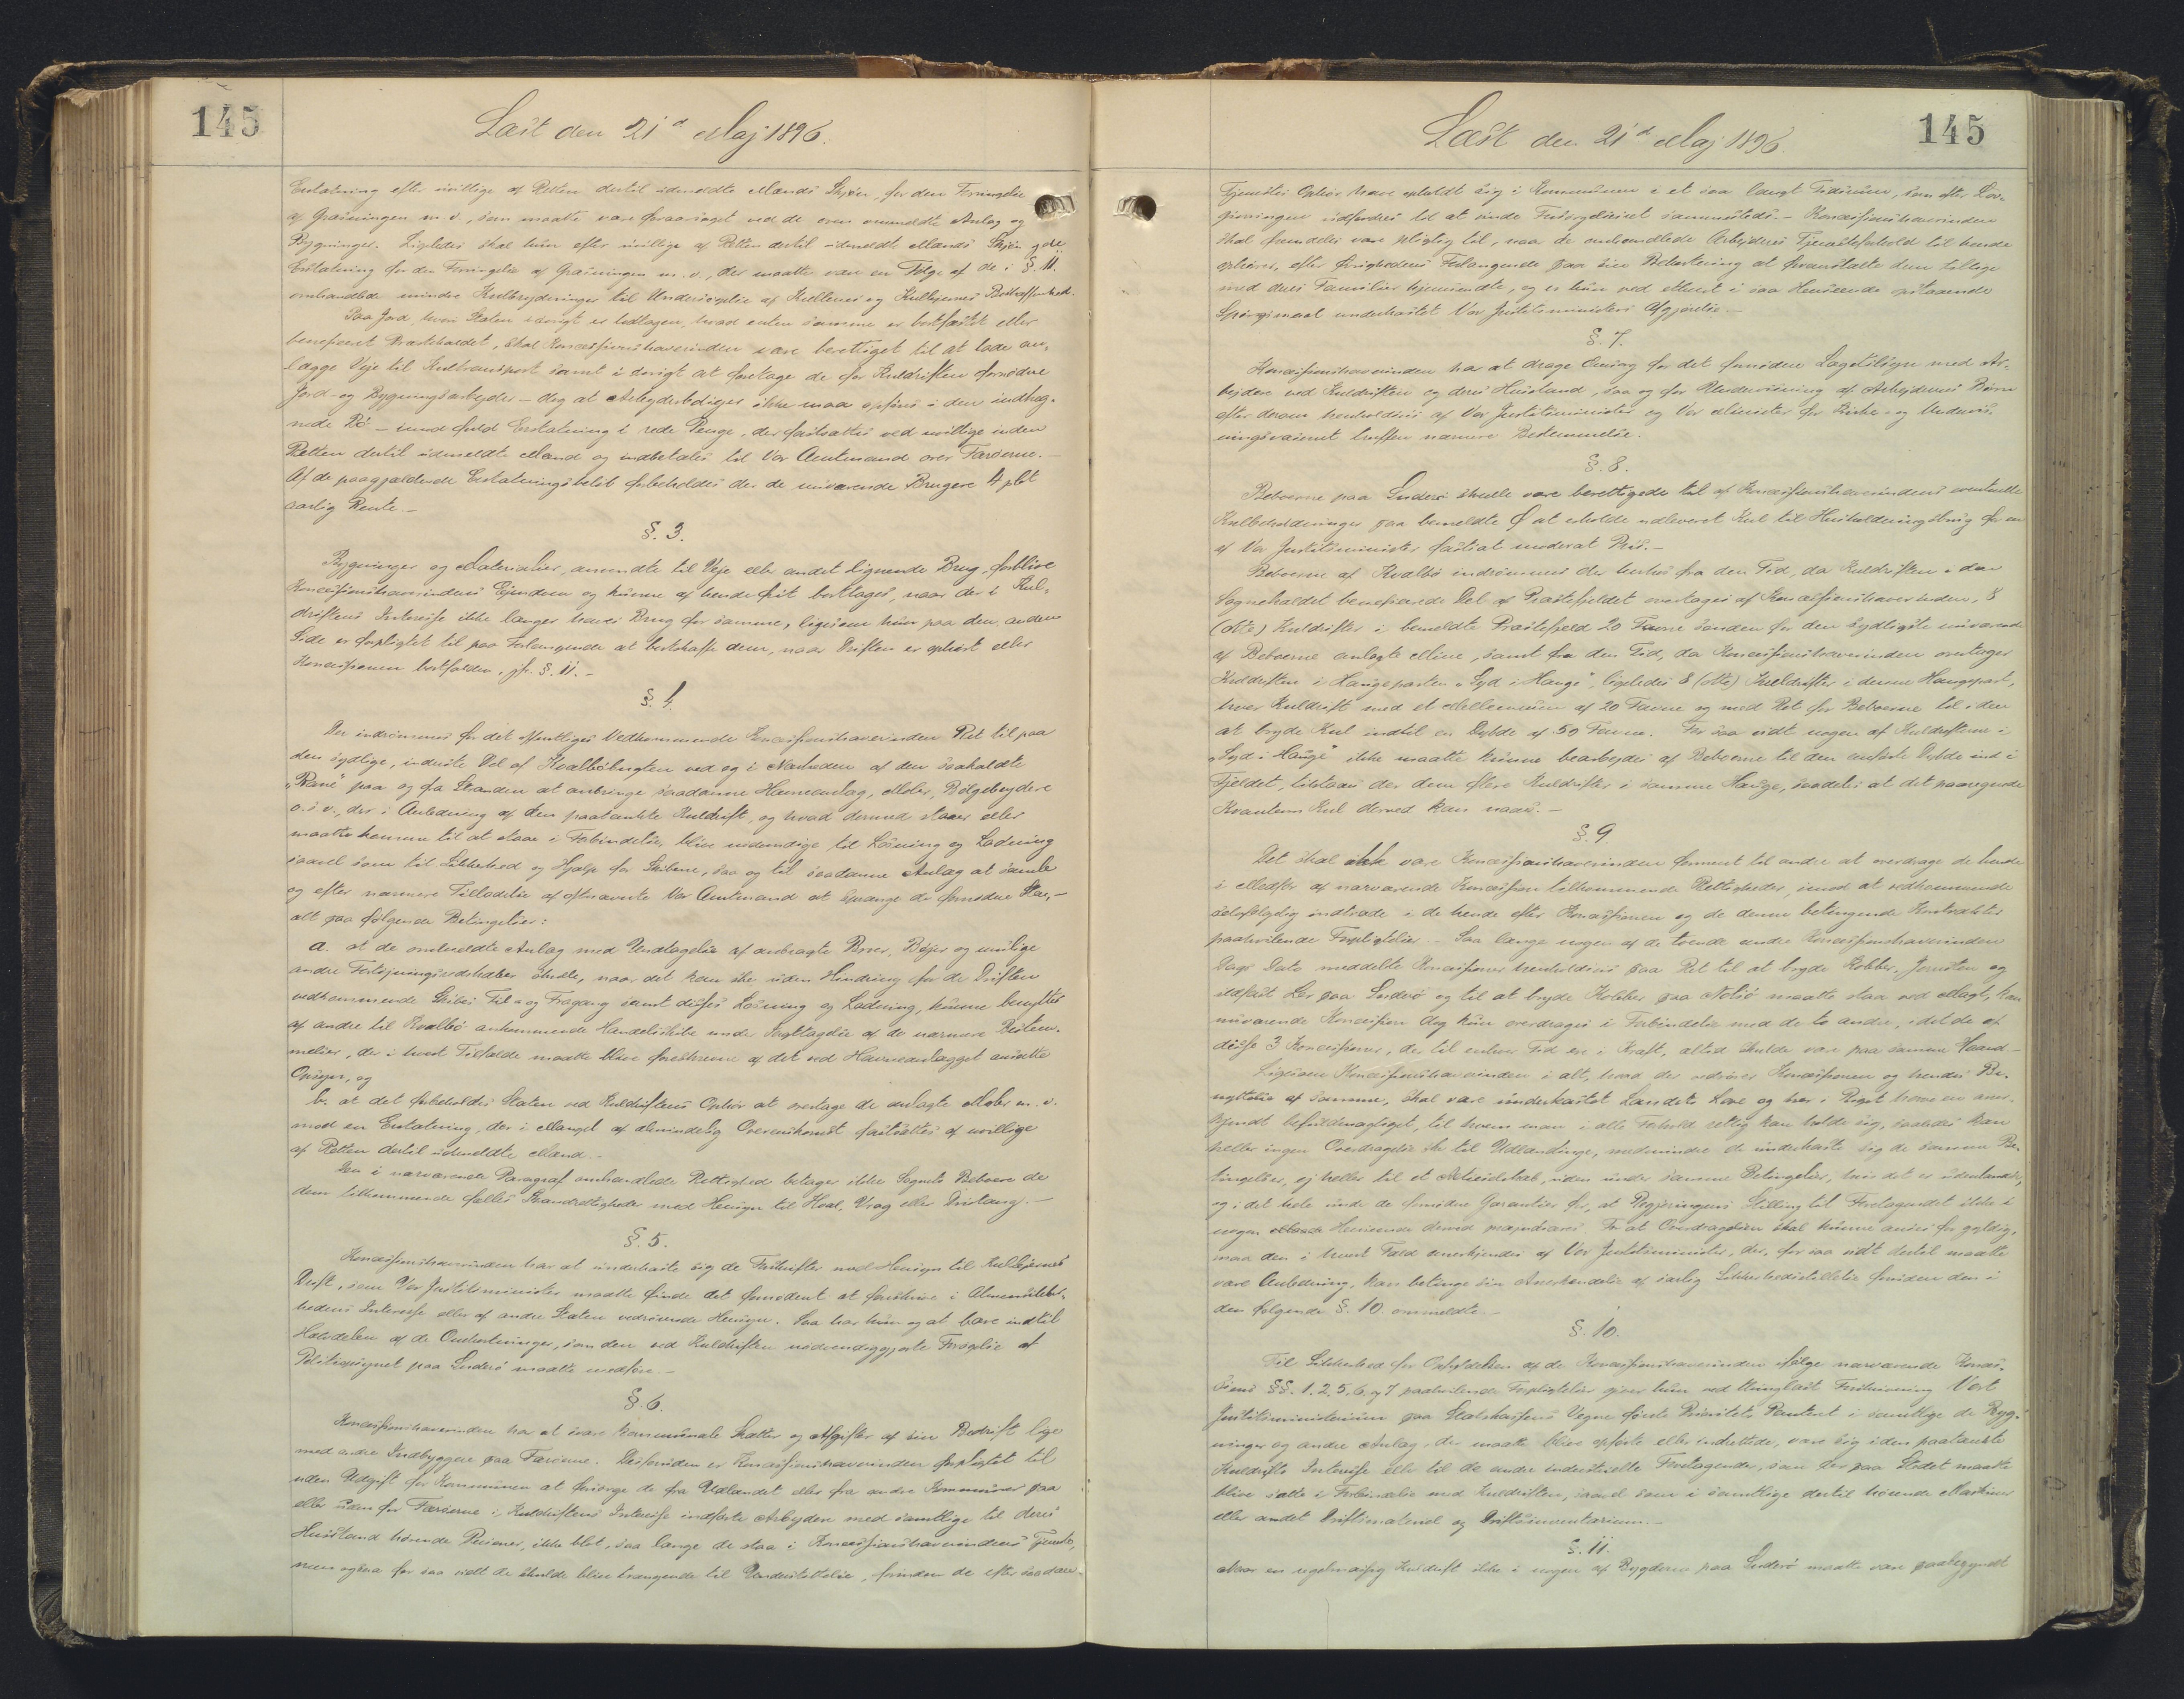 145
Læst den 21d Maj 1896.
Erstatning efter uvillige af Retten dertil udmeldte Mænds Skjøn, for den Forringelse
af Græsningen m. v., som maatte være foraarsaget ved de oven ommeldte Anlæg og
Bygninger. Ligeledes skal hun efter uvillige af Retten dertil udmeldte Mænds Skjøn yde
Erstatning for den Forringelse af Græsningen m. v., der maatte være en Følge af de i §. 11.
omhandlede mindre Kulbrydninger til Undersøgelse af Kullenes og Kullejernes Beskaffenhed.
Paa Jord, hvori Staten iøvrigt er lodtagen, hvad enten samme er bortfæstet eller
beneficeret Præstekaldet, skal Koncessionshaverinden være berettiget til at lade an-
lægge Veje til Kultransport samt iøvrigt at foretage de for Kuldriften fornødne
Jord- og Bygningsarbejder – dog at Arbejderboliger ikke maa opføres i den indheg-
nede Bø – imod fuld Erstatning i rede Penge, der fastsættes ved uvillige inden
Retten dertil udmeldte Mænd og indbetales til Vor Amtmand over Færøerne. –
Af de paagjældende Erstatningsbeløb forbeholdes der de nuværende Brugere 4 pCt
aarlig Rente. –
§. 3.
Bygninger og Materialier, anvendte til Veje eller andet lignende Brug, forblive
Koncessionshaverindens Ejendom og kunne af hende frit borttages, naar der i Kul-
driftens Interesse ikke længer haves Brug for samme, ligesom hun paa den anden
Side er forpligtet til paa Forlangende at bortskaffe dem, naar Driften er ophørt eller
Koncessionen bortfalden, jfr. §. 11. –
§. 4.
Der indrømmes for det offentliges Vedkommende Koncessionshaverinden Ret til paa
den sydlige, inderste Del af Kvalbøbugten ved og i Nærheden af den saakaldte
paa og fra Stranden at anbringe saadanne Havneanlæg, Moler, Bølgebrydere
o. s. v., der i Anledning af den paatænkte Kuldrift, og hvad dermed staar eller
maatte komme til at staae i Forbindelse, blive nødvendige til Losning og Ladning
saavel som til Sikkerhed og Hjælp for Skibene, saa og til saadanne Anlæg at samle
og efter nærmere Tilladelse af oftnævnte Vor Amtmand at sprænge de fornødne Sten, –
alt paa følgende Betingelser:
a. at de ommeldte Anlæg med Undtagelse af anbragte Broer, Bøjer og mulige
andre Fortøjningsredskaber skulle, naar det kan ske uden Hindring for de Driften
vedkommende Skibes Til- og Fragang samt disses Losning og Ladning, kunne benyttes
af andre til Kvalbø ankommende Handelsskibe under Iagttagelse af de nærmere Bestem-
melser, der i hvert Tilfælde maatte blive foreskrevne af det ved Havneanlægget ansatte
Opsyn, og
b. at det forbeholdes Staten ved Kuldriftens Ophør at overtage de anlagte Moler m. v.
mod en Erstatning, der i Mangel af almindelig Overenskomst fastsættes af uvillige
af Retten dertil udmeldte Mænd. –
Den i nærværende Paragraf omhandlede Rettighed betager ikke Sognets Beboere de
dem tilkommende fælles Strandrettigheder med Hensyn til Hval, Vrag eller Drivtang. –
§. 5.
Koncessionshaverinden har at underkaste sig de Forskrifter med Hensyn til Kullejernes
Drift, som Vor Justitsminister maatte finde det fornødent at foreskrive i Almensikker-
hedens Interesse eller af andre Staten vedrørende Hensyn. Saa har hun og at bære indtil
Halvdelen af de Omkostninger, som den ved Kuldriften nødvendiggjorte Forøgelse af
Politiopsynet paa Suderø maatte medføre. –
§. 6.
Koncessionshaverinden har at svare kommunale Skatter og Afgifter af sin Bedrift lige
med andre Indbyggere paa Færøerne. Desforuden er Koncessionshaverinden forpligtet til
uden Udgift for Kommunen at forsørge de fra Udlandet eller fra andre Kommuner paa
eller uden for Færøerne i Kuldriftens Interesse indførte Arbejdere med samtlige til deres
Husstand hørende Personer, ikke blot, saa længe de staa i Koncessionshaverindens Tjeneste,
men ogsaa for saa vidt de skulde blive trængende til Understøttelse, forinden de efter saadan
145
Læst den 21d Maj 1896.
Tjenestes Ophør have opholdt sig i Kommunen i et saa langt Tidsrum, som efter Lov-
givningen udfordres til at vinde Forsørgelsesret sammesteds. – Koncessionshaverinden
skal fremdeles være pligtig til, naar de omhandlede Arbejderes Tjenesteforhold til hende
ophører, efter Øvrighedens Forlangende paa sin Bekostning at foranstalte dem tillige
med deres Familier hjemsendte, og er hun ved ethvert i saa Henseende opstaaende
Spørgsmaal underkastet Vor Justitsministers Afgjørelse. –
§. 7.
Koncessionshaverinden har at drage Omsorg for det fornødne Lægetilsyn med Ar-
bejdere ved Kuldriften og deres Husstand, saa og for Undervisning af Arbejdernes Børn
efter derom henholdsvis af Vor Justitsminister og Vor Minister for Kirke- og Undervis-
ningsvæsenet truffen nærmere Bestemmelse.
§. 8.
Beboerne paa Suderø skulle være berettigede til af Koncessionshaverindens eventuelle
Kulbeholdninger paa bemeldte Ø at erholde udleveret Kul til Husholdningsbrug for en
af Vor Justitsminister fastsat moderat Pris. –
Beboerne af Kvalbø indrømmes der herhos fra den Tid, da Kuldriften i den
Sognekaldet beneficerede Del af Præstefjeldet overtages af Koncessionshaverinden, 8
(otte) Kuldrifter i bemeldte Præstefjeld 20 Favne sønden for den sydligste nuværende
af Beboerne anlagte Mine, samt fra den Tid, da Koncessionshaverinden overtager
Kuldriften i Haugeparten „Syd i Hauge“, ligeledes 8 (otte) Kuldrifter i denne Haugepart,
hver Kuldrift med et Mellemrum af 20 Favne og med Ret for Beboerne til i den
at bryde Kul indtil en Dybde af 50 Favne. For saa vidt nogen af Kuldrifterne i
„Syd i Hauge“ ikke maatte kunne bearbejdes af Beboerne til den anførte Dybde ind i
Fjeldet, tilstaas der dem flere Kuldrifter i samme Hauge, saaledes at det paaregnede
Kvantum Kul derved kan naaes. –
§. 9.
Det skal ikke være Koncessionshaverinden formeent til andre at overdrage de hende
i Medfør af nærværende Koncession tilkommende Rettigheder, imod at vedkommende
selvfølgelig indtræde i de hende efter Koncessionen og de denne betingende Kontrakter
paahvilende Forpligtelser. – Saa længe nogen af de tvende under Koncessionshaverinden
Dags Dato meddelte Koncessioner henholdsvis paa Ret til at bryde Kobber, Jernsten og
ildfast Ler paa Suderø og til at bryde Kobber paa Nolsø maatte staa ved Magt, kan
nuværende Koncession dog kun overdrages i Forbindelse med de to andre, idet de af
disse 3 Koncessioner, der til enhver Tid ere i Kraft, altid skulde være paa samme Haand –
Ligesom Koncessionshaverinden i alt, hvad der vedrører Koncessionen og hendes Be-
nyttelse af samme, skal være underkastet Landets Love og her i Riget have en aner-
kjendt befuldmægtiget, til hvem man i alle Forhold rettig kan holde sig, saaledes kan
heller ingen Overdragelse ske til Udlændinge, medmindre de underkaste sig de samme Be-
tingelser, ej heller til et Aktieselskab, uden under samme Betingelser, hvis det er udenlandsk,
og i det hele under de fornødne Garantier for, at Regjeringens Stilling til Foretagendet ikke i
nogen Henseende derved præjudiceres. For at Overdragelsen skal kunne anses for gyldig,
maa den i hvert Fald anerkjendes af Vor Justitsminister, der, for saa vidt dertil maatte
være Anledning, kan betinge sin Anerkendelse af særlig Sikkerhedsstillelse foruden den i
den følgende §. 10. ommeldte. –
§. 10.
Til Sikkerhed for Opfyldelsen af de Koncessionshaverinden ifølge nærværende Konces-
sions §§. 1. 2. 5. 6. og 7 paahvilende Forpligtelser giver hun ved thinglæst Forskrivning Vort
Justitsministerium paa Statskassens Vegne første Prioritets Panteret i samtlige de Byg-
ninger og andre Anlæg, der maatte blive opførte eller indrettede, være sig i den paatænkte
Kuldrifts Interesse eller til de andre industrielle Foretagender, som der paa Stedet maatte
blive satte i Forbindelse med Kuldriften, saavel som i samtlige dertil hørende Maskiner
eller andet Driftsmateriel og Driftsinventarium. –
§. 11.
Naar en regelmæssig Kuldrift ikke i nogen af Bygderne paa Suderø maatte være paabegyndt